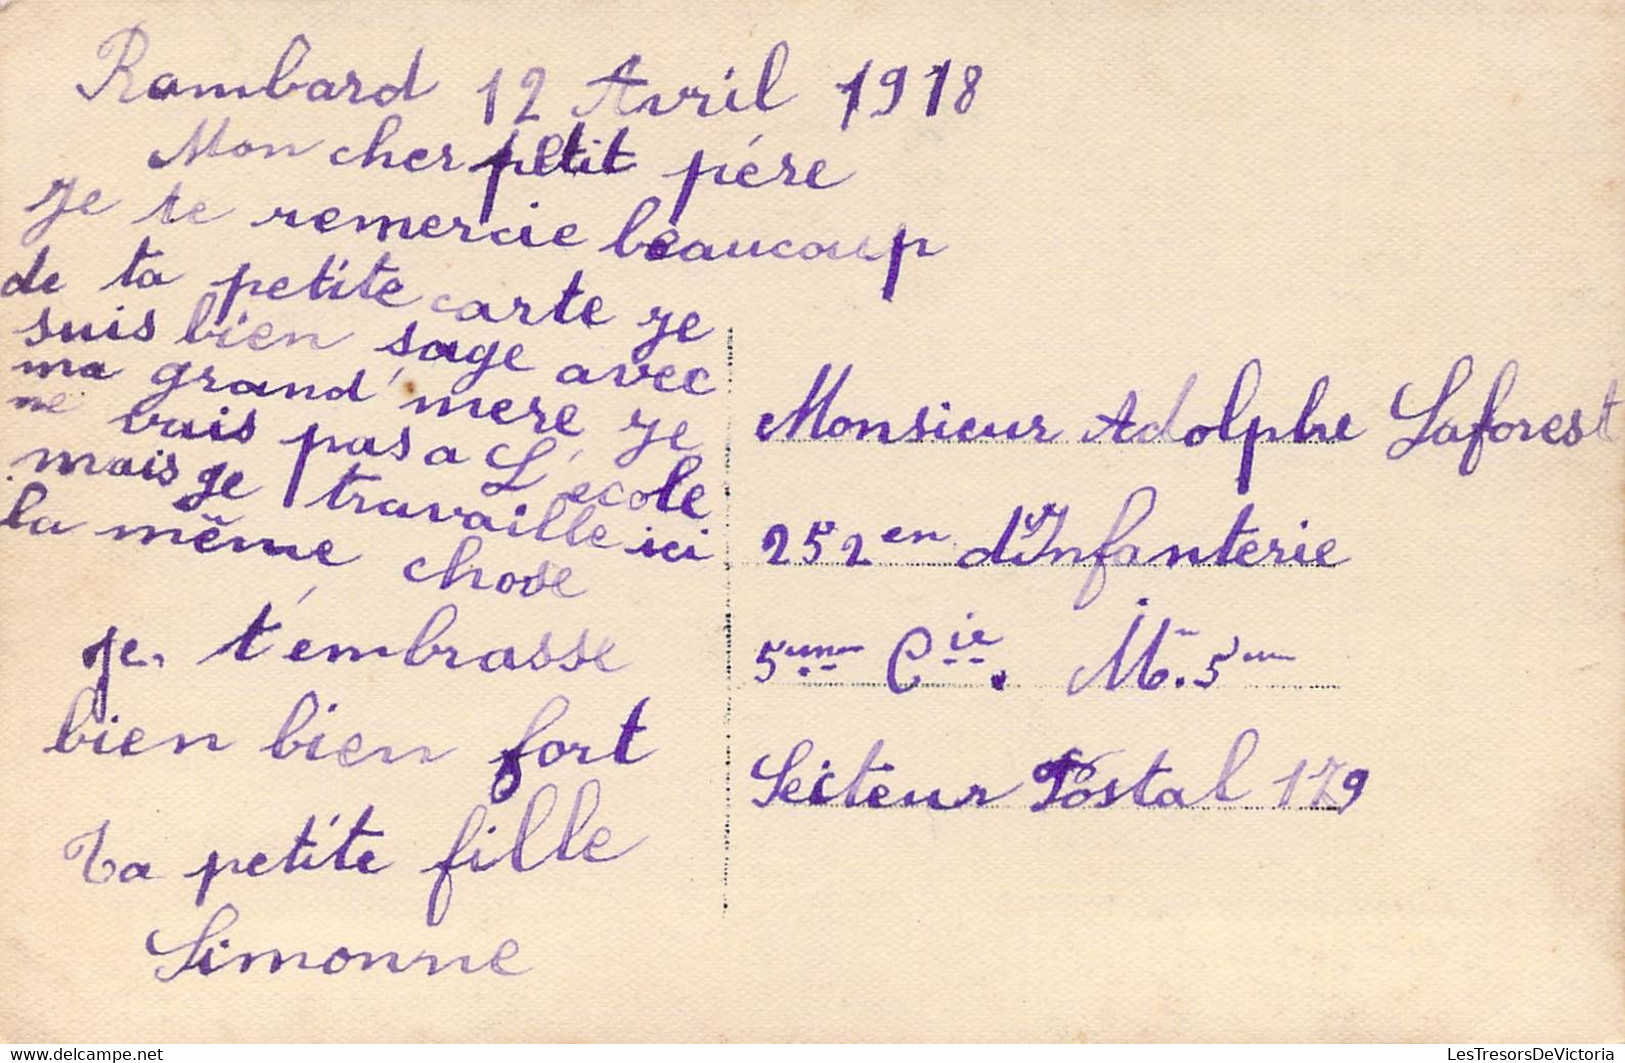 Rambard 12 Avril 1918
Mon cher petit pére
Je te remercie beaucoup
de ta petite carte je
suis bien sage avec
ma grand'mere, je
ne vais pas a L'ecole
mais je travaille ici
la même chose
je t'embrasse
bien bien fort
Ta petite fille
Simonne
Monsieur Adolphe Laforest
252en d'Infanterie
5eme Cie. 5eme
Secteur Postal 179
LesTresorsDeVictoria